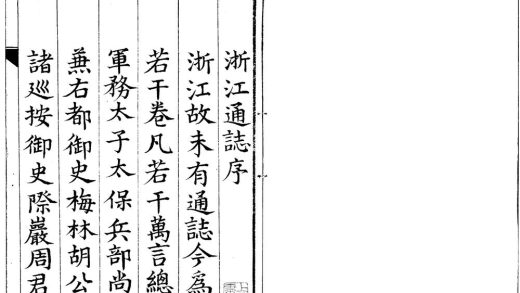 浙江通誌序
浙江故未有通誌今為
若干卷凡若干萬言總
軍務太子太保兵部尚
兼右都御史梅林胡公
諸廵按御史際巖周君